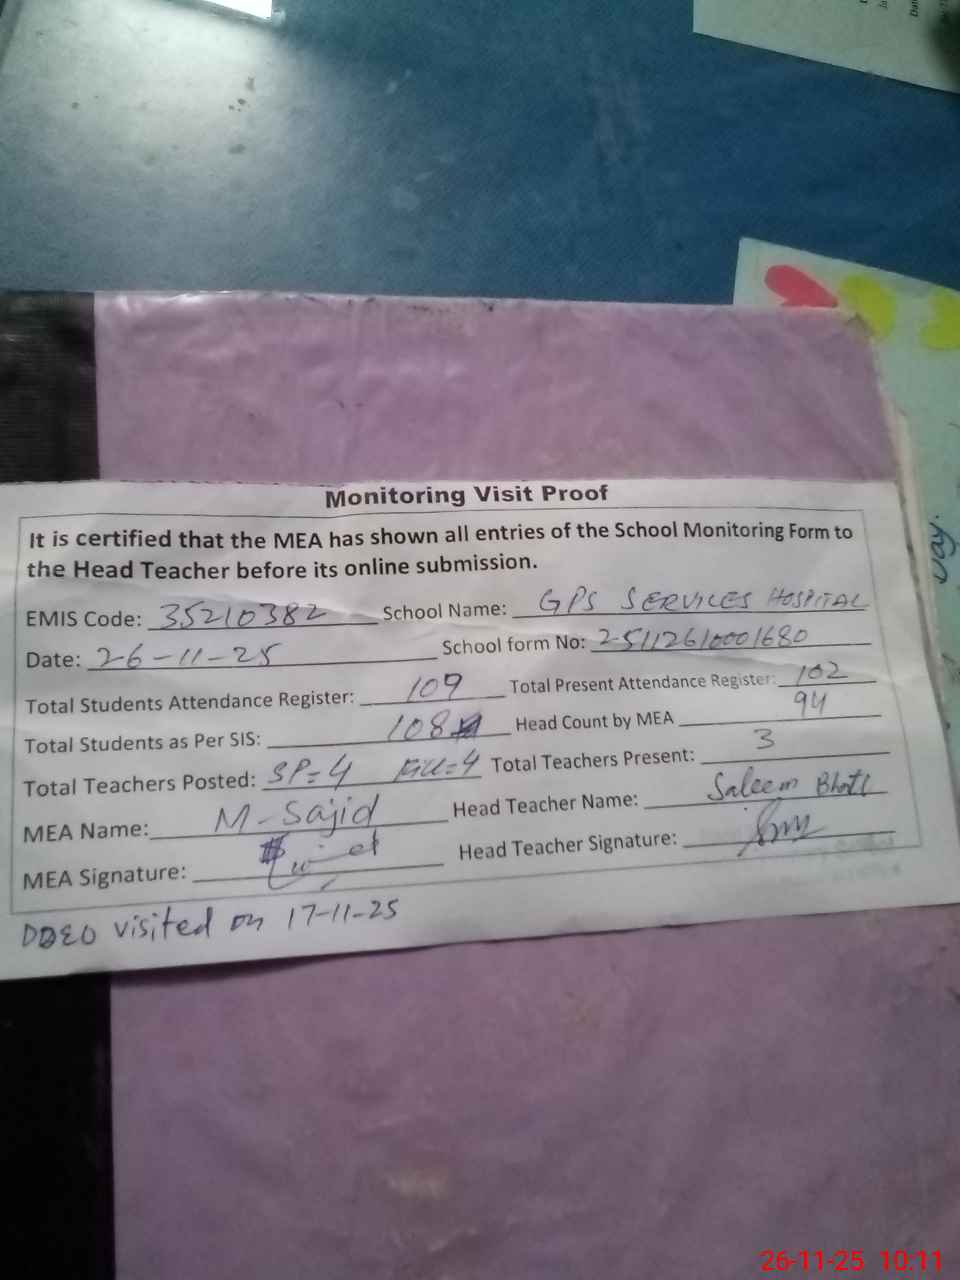 Monitoring Visit Proof
It is certified that the MEA has shown all entries of the School Monitoring Form to
the Head Teacher before its online submission.
EMIS Code: 35210382 School Name: GPS SERVICES HOSPITAL
Date: 26-11-25 School form No: 2-5112610001680
Total Students Attendance Register: 109 Total Present Attendance Register: 102
Total Students as Per SIS: 108 Head Count by MEA 94
Total Teachers Posted: SP=4 =4 Total Teachers Present: 3
MEA Name: M-Sajid Head Teacher Name: Saleem Bhatti
MEA Signature: Head Teacher Signature:
DDEO visited on 17-11-25
Day.
26-11-25 10:11